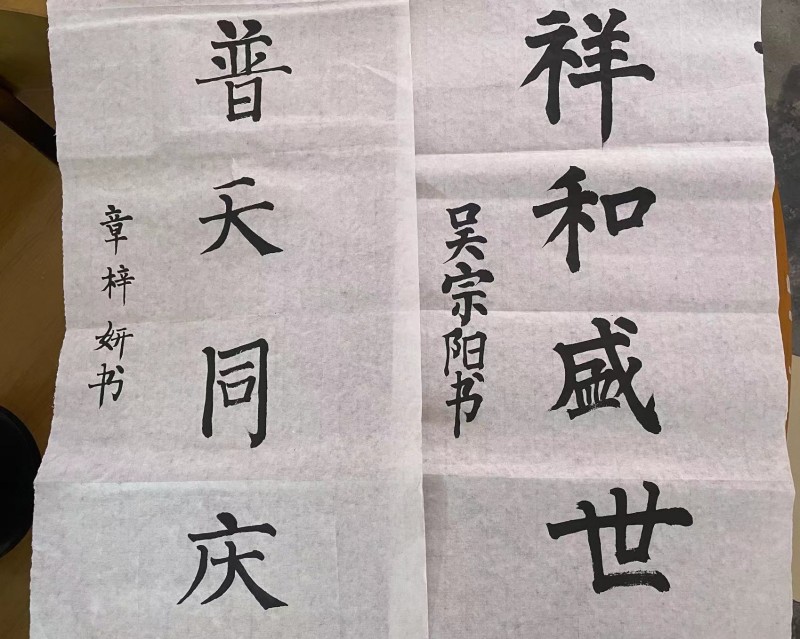 祥和盛世
吴宗阳书
普天同庆
章梓妍书